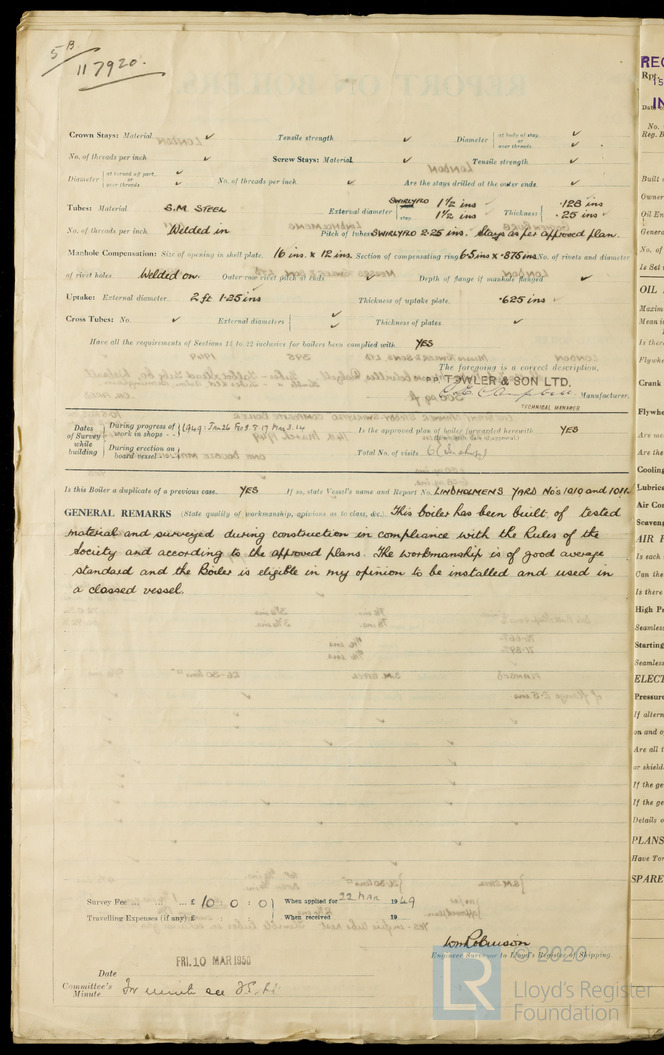 5B
117920.
Crown Stays: Material ✓ Tensile strength ✓ Diameter at body of stay or over threads ✓ ✓
No. of threads per inch ✓ Screw Stays: Material ✓ Tensile strength ✓
Diameter at turned off part or over threads ✓ ✓ No. of threads per inch ✓ Are the stays drilled at the outer ends. ✓
Tubes: Material S.M. STEEL External diameter SWIRLYFLO 1½ ins ✓ stay 1½ ins ✓ Thickness .128 ins .25 ins ✓
No. of threads per inch Welded in Pitch of tubes SWIRLYFLO 2.25 ins. Stays as per approved plan.
Manhole Compensation: Size of opening in shell plate. 16 ins. x 12 ins. Section of compensating ring 6.5 ins x .875 ins No. of rivets and diameter
of rivet holes Welded on. Outer row rivet pitch at ends ✓ Depth of flange if manhole flanged ✓
Uptake: External diameter 2 ft 1.25 ins Thickness of uptake plate .625 ins ✓
Cross Tubes: No. ✓ External diameters ✓ ✓ Thickness of plates ✓
Have all the requirements of Sections 14 to 22 inclusive for boilers been complied with. YES
The foregoing is a correct description,
TOWLER & SON LTD.
Manufacturer.
TECHNICAL MANAGER
Dates of Survey while building During progress of work in shops - - 1949: Jan 26 Feb 9. 7. 17 Mar 3. 14 Is the approved plan of boiler forwarded herewith YES
During erection on board vessel - - - Total No. of visits 6 (In shop)
Is this Boiler a duplicate of a previous case. YES If so, state Vessel's name and Report No. LINDHOLMENS YARD No's 1010 and 1011.
GENERAL REMARKS (State quality of workmanship, opinions as to class, &c.) This boiler has been built of tested
material and surveyed during construction in compliance with the Rules of the
Society and according to the approved plans. The workmanship is of good average
standard and the Boiler is eligible in my opinion to be installed and used in
a classed vessel.
Survey Fee ... ... ... £ 10 : 0 : 0 When applied for 22 Mar 1949
Travelling Expenses (if any) £ When received 19
Wm Robinson
Engineer Surveyor to Lloyd's Register of Shipping.
Date FRI. 10 MAR 1950
Committee's Minute
LR © 2020
Lloyd's Register
Foundation